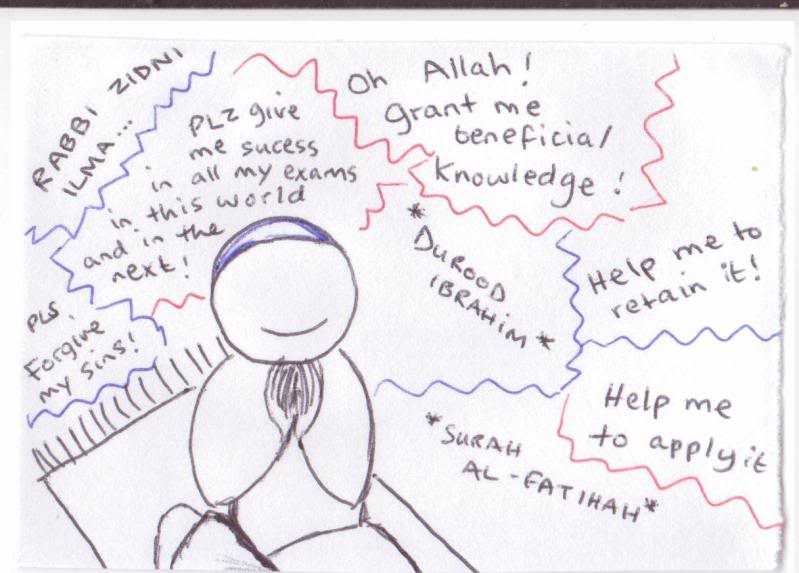 RABBI ZIDNI
ILMA...
PLZ give
me sucess
in all my exams
in this world
and in the
next!
Oh Allah!
grant me
beneficial
Knowledge!
PLS,
Forgive
my sins!
*DUROOD
IBRAHIM*
Help me to
retain it!
Help me
to apply it
*SURAH
AL-FATIHAH*